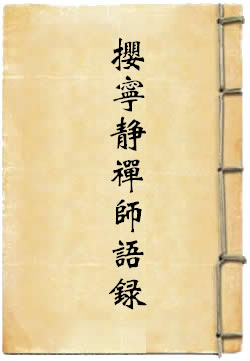 攖寧静禪師語録